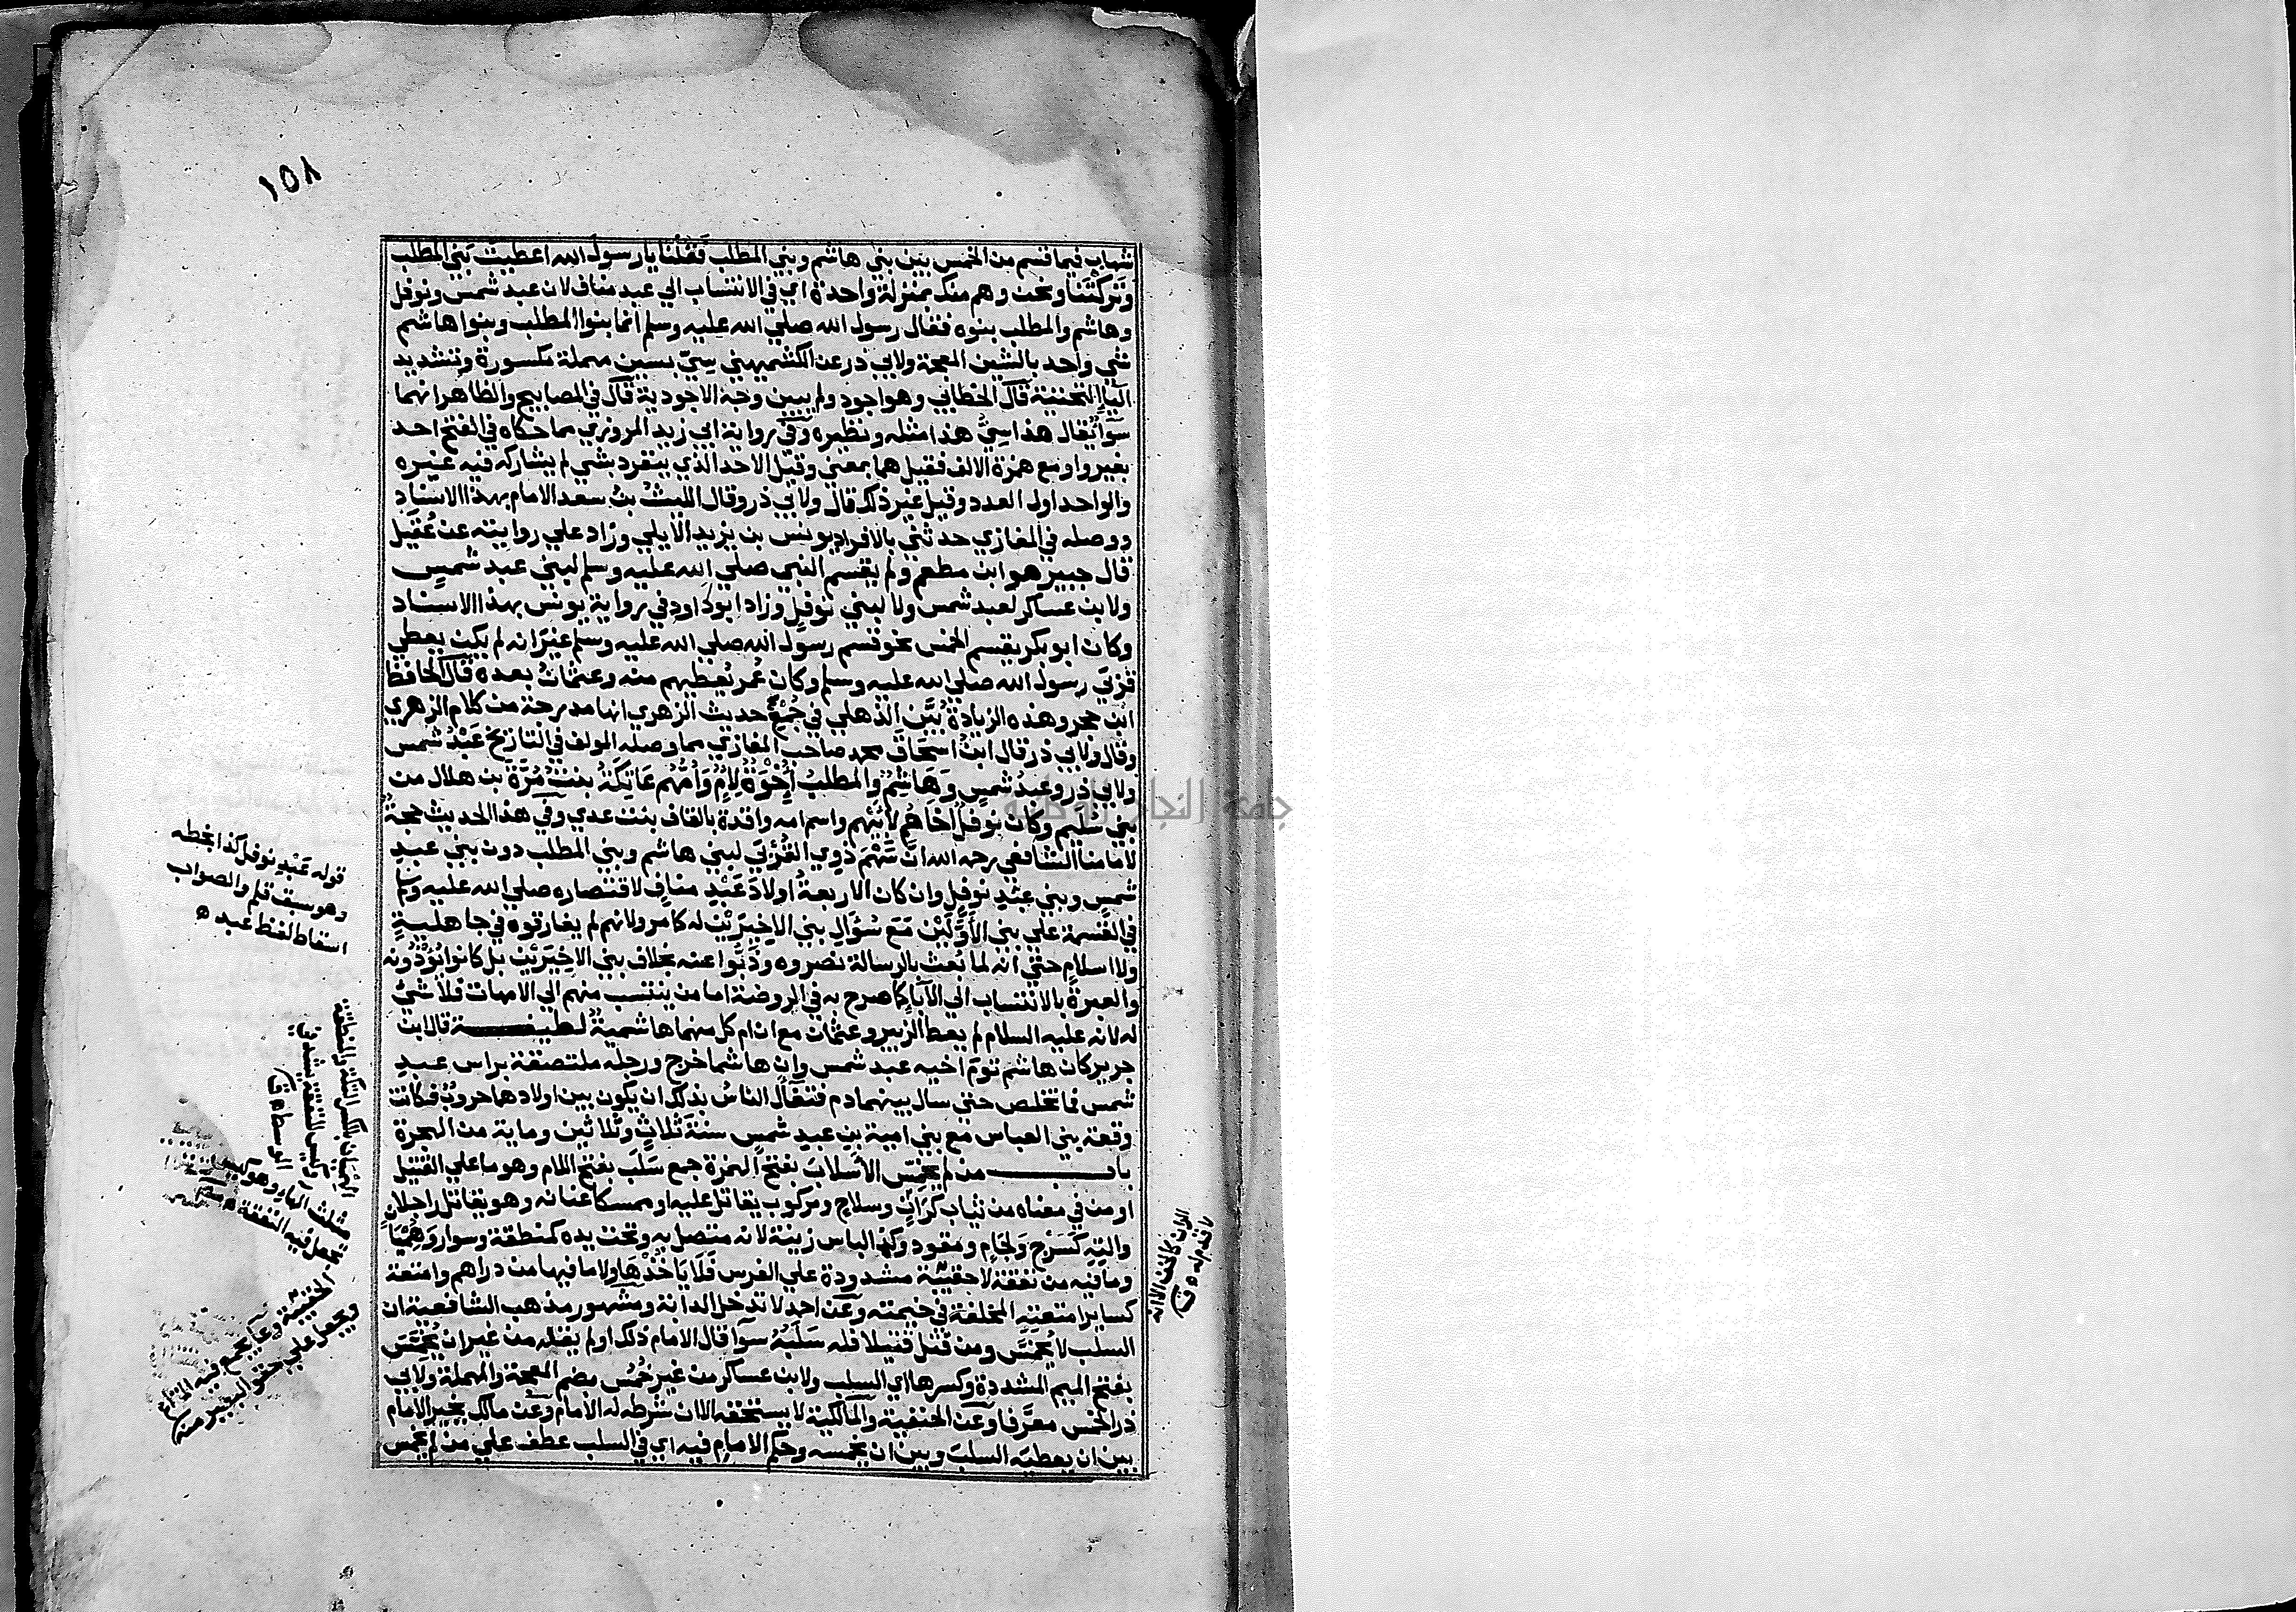 ١٥٨
شهاب فيما قسم من الخمس بين بني هاشم وبني المطلب فَقُلْنَا يا رسولَ الله اعطيتَ بَنِي المطلب
وتَرَكْتَنَا ونحن وهم منك بمنزلة واحدة اي في الانتساب الي عبد مناف لان عبد شمس ونوفل
وهاشم والمطلب بنوه فقال رسول الله صلي الله عليه وسلم انما بنوا المطلب وبنوا هاشم
شي واحد بالشين المعجمة ولابي ذر عن الكشميهني سِيّ بسين مهملة مكسورة وتشديد
اليآء التحتية قال الخطابي وهو اجود ولم يبين وجه الاجودية قال في المصابيح والظاهر انهما
سوآ يُقال هذا سِيُّ هذا مثله ونظيره وفي رواية ابي زيد المروزي مما حكاه في الفتح احد
بغير واو مع همزة الالف فقيل هما بمعني وقيل الاحد الذي ينفرد بشي لم يشاركه فيه غيره
والواحد اول العدد وقيل غير ذلك قال ولابي ذر وقال الليثُ بنُ سعد الامام بهذا الاسناد
ووصله في المغازي حدثني بالافراد يونس بن يزيد الايلي وزاد علي روايته عن عُقَيل
قال جبير هو ابن مطعم ولم يقسم النبي صلي الله عليه وسلم لبني عبد شمسٍ
ولابن عساكر لعبد شمس ولا لبني نوفلٍ وزاد ابو داود في رواية يونس بهذا الاسناد
وكان ابو بكر يقسم الخمس نحو قسم رسول الله صلي الله عليه وسلم غير انه لم يكن يعطي
قربي رسول الله صلي الله عليه وسلم وكان عُمر يُعطيهم منه وعثمانُ بعده قال الحافظ
ابن حجر وهذه الزيادة بَيَّن الذهلي في جمع حديث الزهري انها مدرجة من كلام الزهري
وقال ولابي ذر قال ابنُ اسحاقَ محمد صاحب المغازي مما وصله المولف في التاريخ عَبْدُ شمس
ولابي ذر وعبدُ شمسٍ وَهَاشِمٌ والمطلبُ إِخْوَةٌ لِأُمٍّ وَأُمُّهم عَاتِكَةُ بنتُ مُرَّةَ بن هلال من
بني سُلَيم وكان نوفلُ أَخَاهُم لأَبِيهم واسم امه واقدة بالقاف بنت عدي وفي هذا الحديث حجةٌ
لامامنا الشافعي رحمه الله انَّ سَهْمَ ذَوي القُرْبَي لبني هاشم وبني المطلب دون بني عبدِ
شمسٍ وبني عبدِ نوفلٍ وان كان الاربعةُ اولادَ عَبْدِ منافٍ لاقتصاره صلي الله عليه وسلم
في القسمة علي بني الأَوَّلَيْن مَعَ سُؤَالِ بني الاخِيرَيْن له كما مر ولانهم لم يفارقوه في جاهليةٍ
ولا اسلامٍ حتي انه لما بُعث بالرسالة نصروه وذَبُّوا عنه بخلاف بني الاخِيرَيْن بل كانوا يُؤْذُونه
والعبرةُ بالانتساب الي الآبآء كما صرح به في الروضة اما من ينتسب منهم الي الامهات فلا شَيْ
له لانه عليه السلام لم يعط الزبير وعثمان مع ان ام كل منهما هاشميةٌ لطيفـــة قال ابن
جرير كان هاشم توم اخيه عبد شمس وان هاشما خرج ورجله ملتصقة براس عبدِ
شمس فما تخلص حتي سال بينهما دم فتفآل الناسُ بذلك ان يكون بين اولادهما حروبٌ فكانت
وقعة بني العباس مع بني امية بن عبد شمسٍ سنة ثلاثٍ وثلاثين وماية من الهجرة
بابـــــ من لم يخمِّس الأسلابَ بفتح الهمزة جمع سَلَب بفتح اللام وهو ما علي القتيل
او من في معناه من ثياب كرانٍ وسلاحٍ ومركوب يقاتل عليه او ممسكا عنانه وهو يقاتل راجلا
وآلتِهِ كَسَرْجٍ ولِجَامٍ ومقود وكذا لباس زينة لانه متصل به وتحت يده كمنطقة وسوار وَهِمْيَان
وما فيه من نفقة لا حقيبة مشدودة علي الفرس فَلَا يَاخُذْهَا ولا ما فيها من دراهم وامتعة
كساير امتعتِهِ المخلفة في خيمته وعن احمد لا تدخل الدابة ومشهور مذهب الشافعية ان
السلب لا يُخَمَّس ومن قَتَل قتيلا فله سَلَبُهُ سوآ قال الامام ذلك او لم يقله من غير ان يُخَمَّسَ
بفتح الميم المشددة وكسرها اي السلب ولابن عساكر من غير خُمُس بضم المعجمة والمهملة ولابي
ذر الخمس معرَّفا وعن الحنفية والمالكية لا يستحقه الا ان شرطه له الامام وعن مالك يخير الامام
بين ان يعطيه السلبَ وبين ان يخمسه وحكم الامامِ فيه اي في السلب عطف علي من لم يخمس
قوله عَبْدِ نوفل كذا بخطه
وهو سبق قلم والصواب
اسقاط لفظ عبد ه
الهميان بالكسر التكة والمنطقة
وكيس للنفقة يشد في
الوسط ه ق
مثلث الهاء وهو كيس
يجعل فيه النفقة
الحقيبة وعآ يجمع فيه المتاع
ويجعل علي حقو البعير
الران كالخف الا انه
لا قدم له ه ق
جامعة النجاح الوطنية